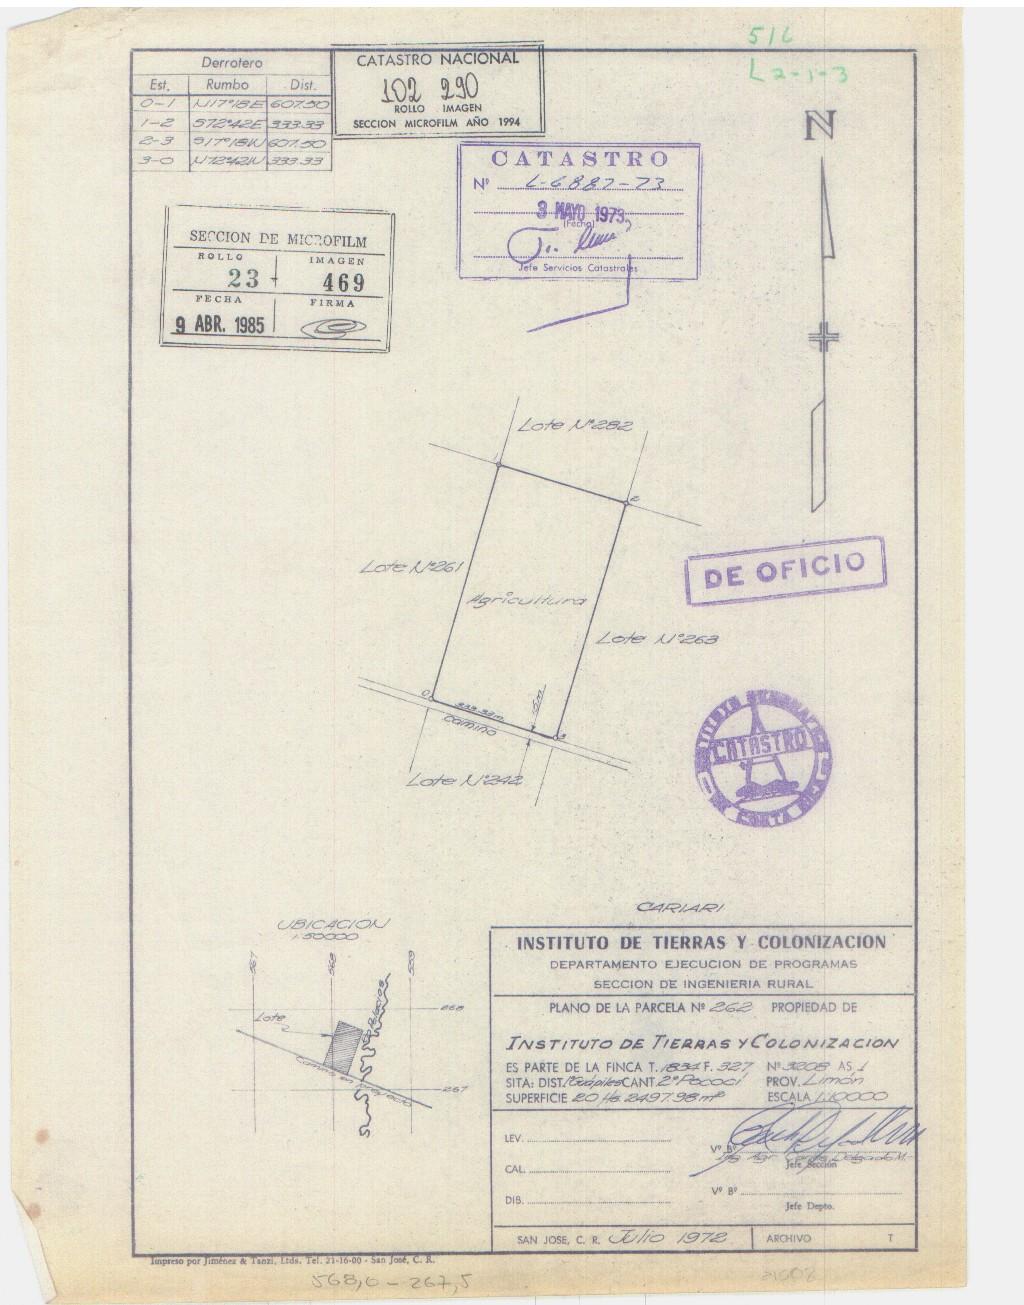 516
L2-1-3
Derrotero
Est. Rumbo Dist.
0-1 N17°18E 607.50
1-2 S72°42E 333.33
2-3 S17°18W 607.50
3-0 N72°42W 333.33
CATASTRO NACIONAL
102 290
ROLLO IMAGEN
SECCION MICROFILM AÑO 1994
CATASTRO
Nº L-6887-73
3 MAYO 1973
(Fecha)
Jefe Servicios Catastrales
SECCION DE MICROFILM
ROLLO IMAGEN
23 469
FECHA FIRMA
9 ABR. 1985
N
Lote Nº282
1
2
Lote Nº261
Agricultura
DE OFICIO
Lote Nº263
0
333.33m
Camino
3
Lote Nº242
CATASTRO
COSTA RICA
CARIARI
UBICACION
1:50000
567 568 559
268
Lote
267
Camino en Proyecto
INSTITUTO DE TIERRAS Y COLONIZACION
DEPARTAMENTO EJECUCION DE PROGRAMAS
SECCION DE INGENIERIA RURAL
PLANO DE LA PARCELA Nº 262 PROPIEDAD DE
INSTITUTO DE TIERRAS Y COLONIZACION
ES PARTE DE LA FINCA T. 1834 F. 327 Nº 3208 AS. 1
SITA: DIST. 1º Guápiles CANT. 2º Pococí PROV. Limón
SUPERFICIE 20 Hs. 2497.98 m² ESCALA 1:10000
LEV.
Vº Bº
Ing. Agr. Carlos Delgado M.
Jefe Sección
CAL.
DIB.
Vº Bº
Jefe Depto.
SAN JOSE, C. R. Julio 1972 ARCHIVO T
Impreso por Jiménez & Tanzi, Ltda. Tel. 21-16-00 - San José, C. R.
568,0 - 267,5